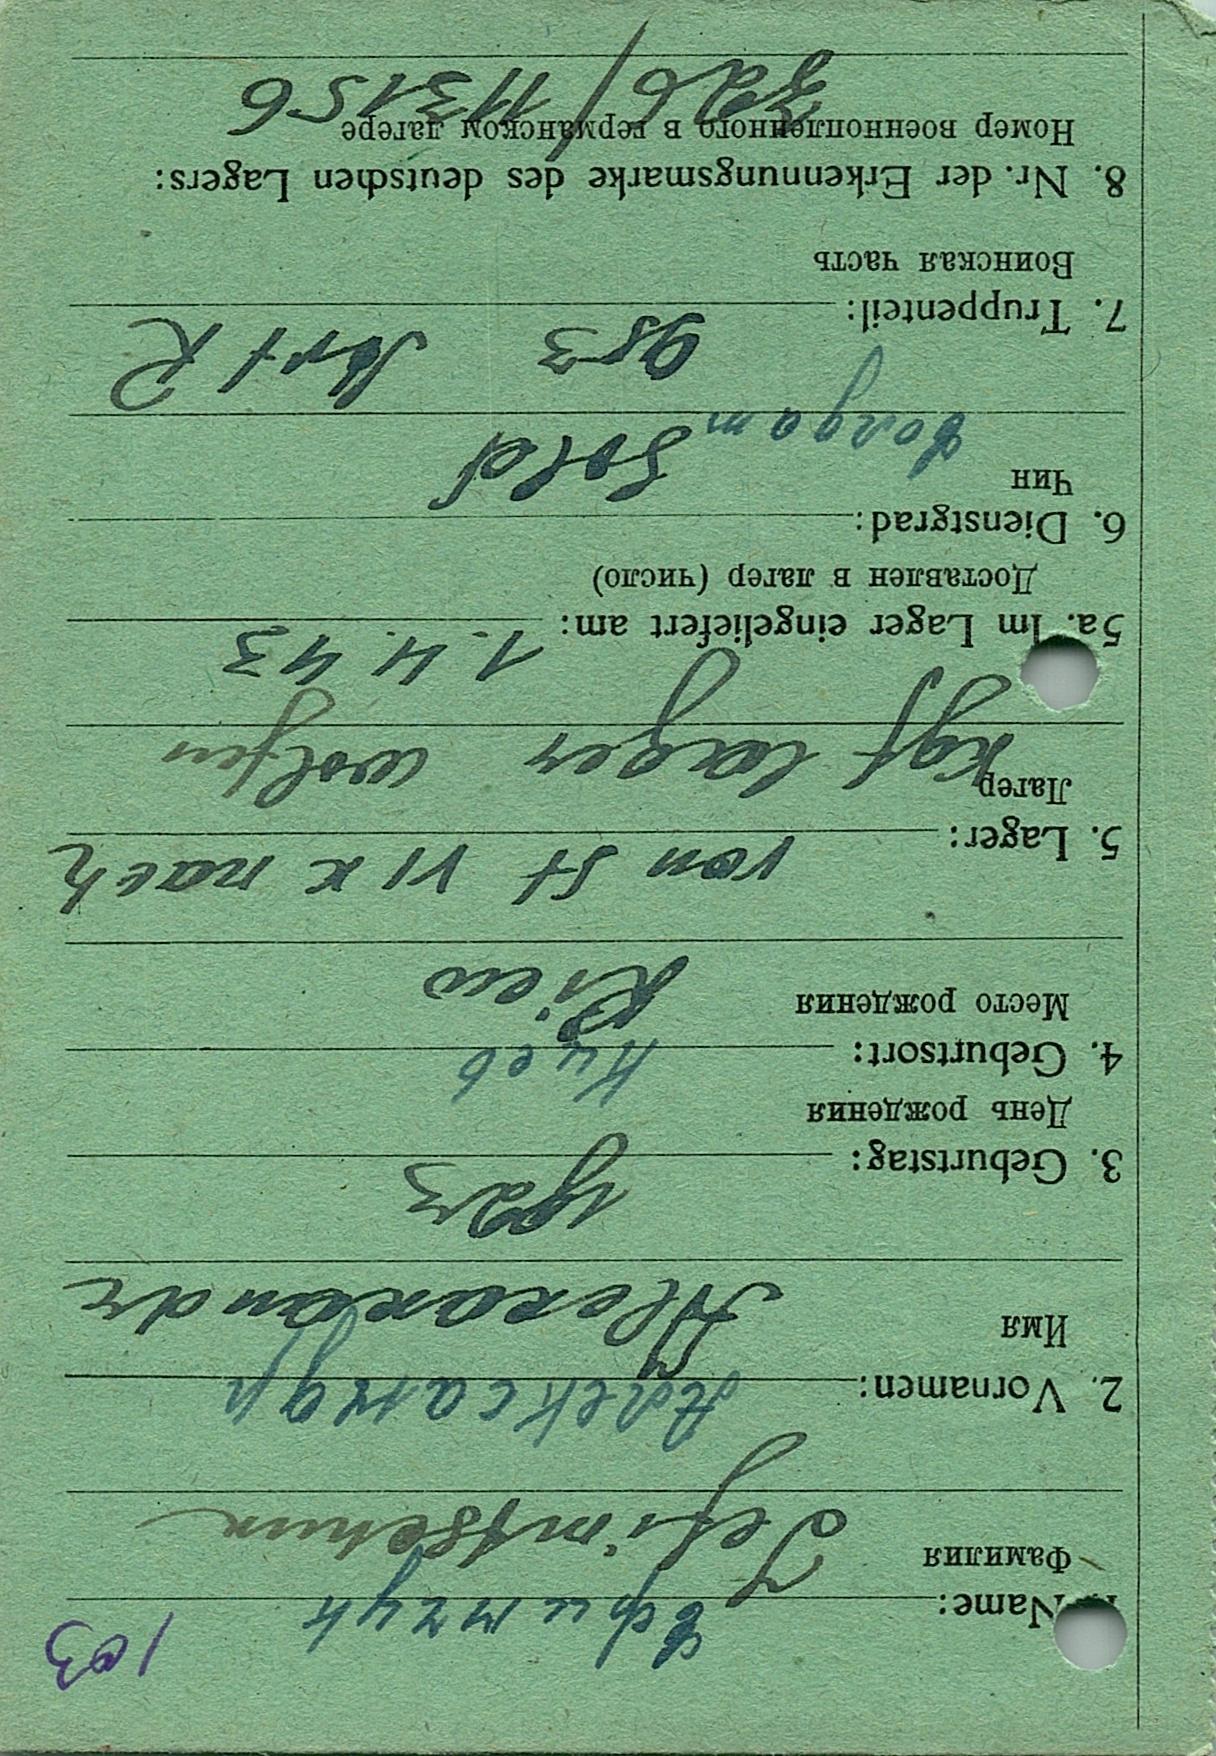 103
Name: Ефимчук
Фамилия Jefimtschun
2. Vornamen: Александр
Имя Alexander
3. Geburtstag: 1923
День рождения
4. Geburtsort: Киев
Место рождения Kiew
5. Lager: von St VI K nach
Лагер Kgf Lager Wolfen
5a. Im Lager eingeliefert am: 1.4.43
Доставлен в лагер (число)
6. Dienstgrad: Sold
Чин Солдат
7. Truppenteil: 953 Art R
Воинская часть
8. Nr. der Erkennungsmarke des deutschen Lagers:
Номер военнопленного в германском лагере
326/113156